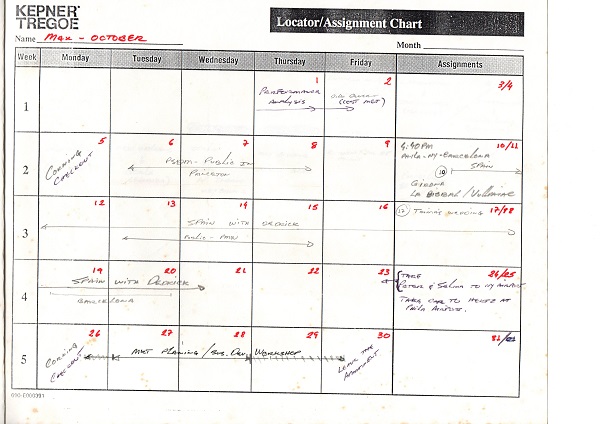 KEPNER
TREGOE
Locator/Assignment Chart
Name MAX - OCTOBER
Month
Week Monday Tuesday Wednesday Thursday Friday Assignments
1 1 2 3/4
PERFORMANCE
ANALYSIS
(COST MET)
2 5 6 7 8 9 10/11
CORNING
CHECKOUT
PSDM - PUBLIC IN
PRINCETON
4:40 PM
PHILA - NY - BARCELONA
10 SPAIN
GIRONA
LA BISBAL /
3 12 13 14 15 16 17/18
SPAIN WITH DEDRICK
PUBLIC - PARIS
17 WEDDING
4 19 20 21 22 23 24/25
SPAIN WITH DEDRICK
BARCELONA
TAKE
PETER & SELMA TO NY AIRPORT
TAKE CAR TO HERTZ AT
PHILA AIRPORT.
5 26 27 28 29 30 31
CORNING
CHECKOUT
MGT PLANNING / BUS. DEV WORKSHOP
LEAVE THE
APARTMENT